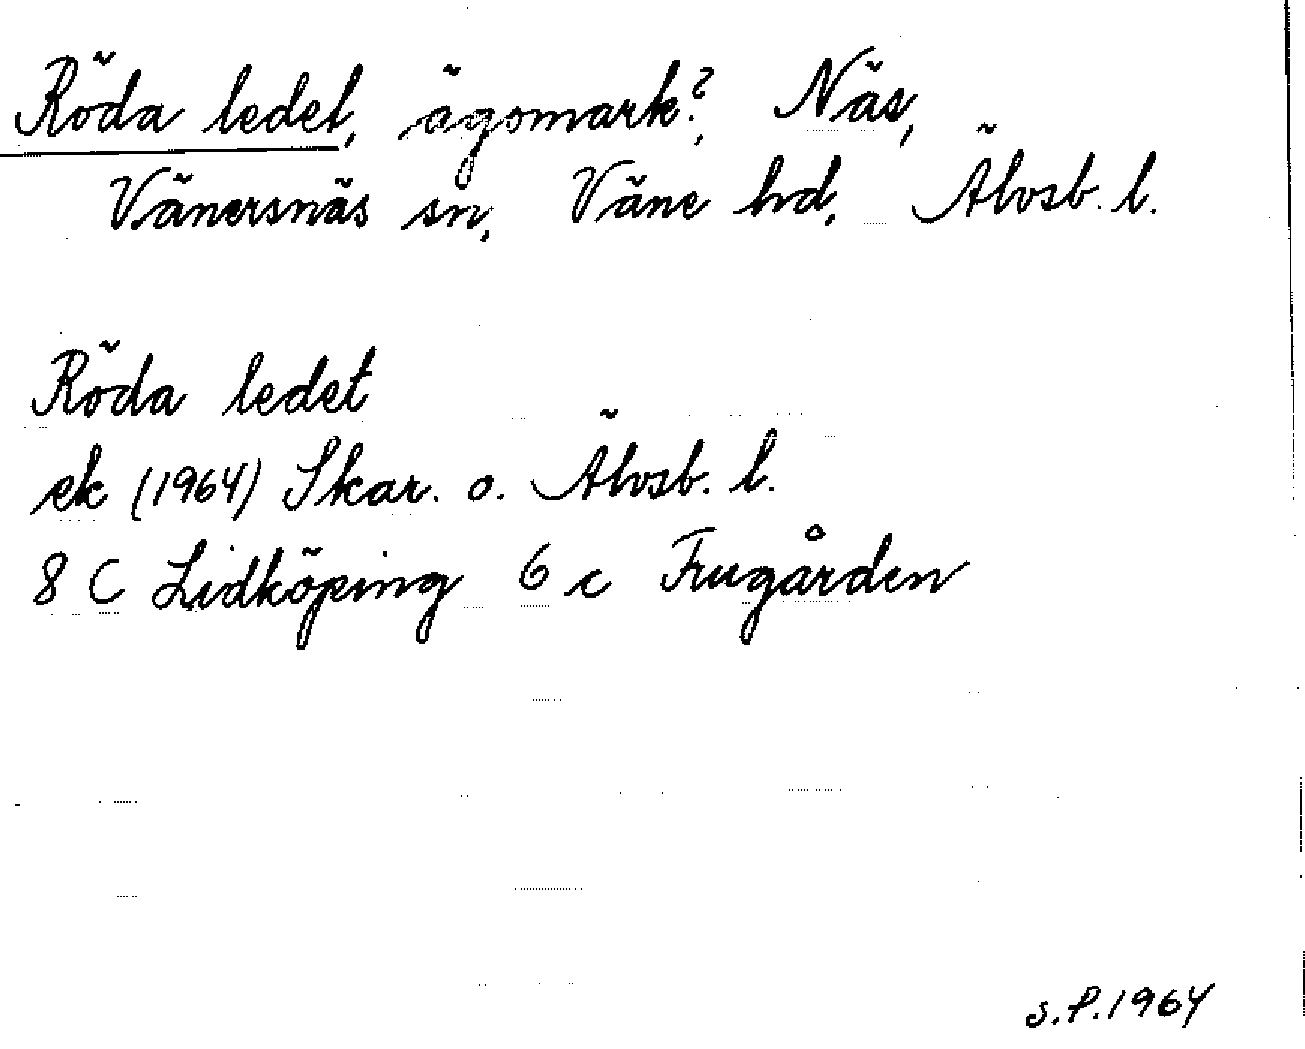 Röda ledet, ägomark?, Näs,
Vänersnäs sn, Väne hd, Älvsb. l.
Röda ledet
ek (1964) Skar. o. Älvsb. l.
8 C Lidköping 6 c Frugården
s.P.1964